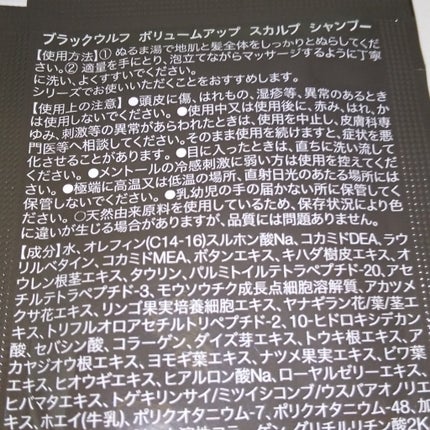 ブラックウルフ ボリュームアップ スカルプ シャンプー
【使用方法】① ぬるま湯で地肌と髪全体をしっかりとぬらしてくだ
さい。② 適量を手にとり、泡立てながらマッサージするように丁寧
に洗い、よくすすいでください。
シリーズでお使いいただくことをおすすめします。
【使用上の注意】●頭皮に傷、はれもの、湿疹等、異常のあるときは
は使用しないでください。●使用中又は使用後に、赤み、はれ、か
ゆみ、刺激等の異常があらわれたときは、使用を中止し、皮膚科専
門医等へ相談してください。そのまま使用を続けますと、症状を悪
化させることがあります。●目に入ったときは、直ちに洗い流して
ください。●メントールの冷感刺激に弱い方は使用を控えてくだ
さい。●極端に高温又は低温の場所、直射日光のあたる場所には
保管しないでください。●乳幼児の手の届かない所に保管してく
ださい。○天然由来原料を使用しているため、保存状況により色
に違いが生じる場合がありますが、品質には問題ありません。
【成分】水、オレフィン(C14-16)スルホン酸Na、コカミドDEA、ラウ
リルベタイン、コカミドMEA、ボタンエキス、キハダ樹皮エキス、オ
ウレン根茎エキス、タウリン、パルミトイルテトラペプチド-20、アセ
チルテトラペプチド-3、モウソウチク成長点細胞溶解質、アカツメ
クサ花エキス、リンゴ果実培養細胞エキス、ヤナギラン花/葉/茎エ
キス、トリフルオロアセチルトリペプチド-2、10-ヒドロキシデカン
酸、セバシン酸、コラーゲン、ダイズ芽エキス、トウキ根エキス、ア
カヤジオウ根エキス、ヨモギ葉エキス、ナツメ果実エキス、ビワ葉
エキス、ヒオウギエキス、ヒアルロン酸Na、ローヤルゼリーエキス、
ヒバマタエキス、トゲキリンサイ/ミツイシコンブ/ウスバアオノリエ
キス、ホエイ(牛乳)、ポリクオタニウム-7、ポリクオタニウム-48、加
水分解コラーゲン、グリチルリチン酸2K